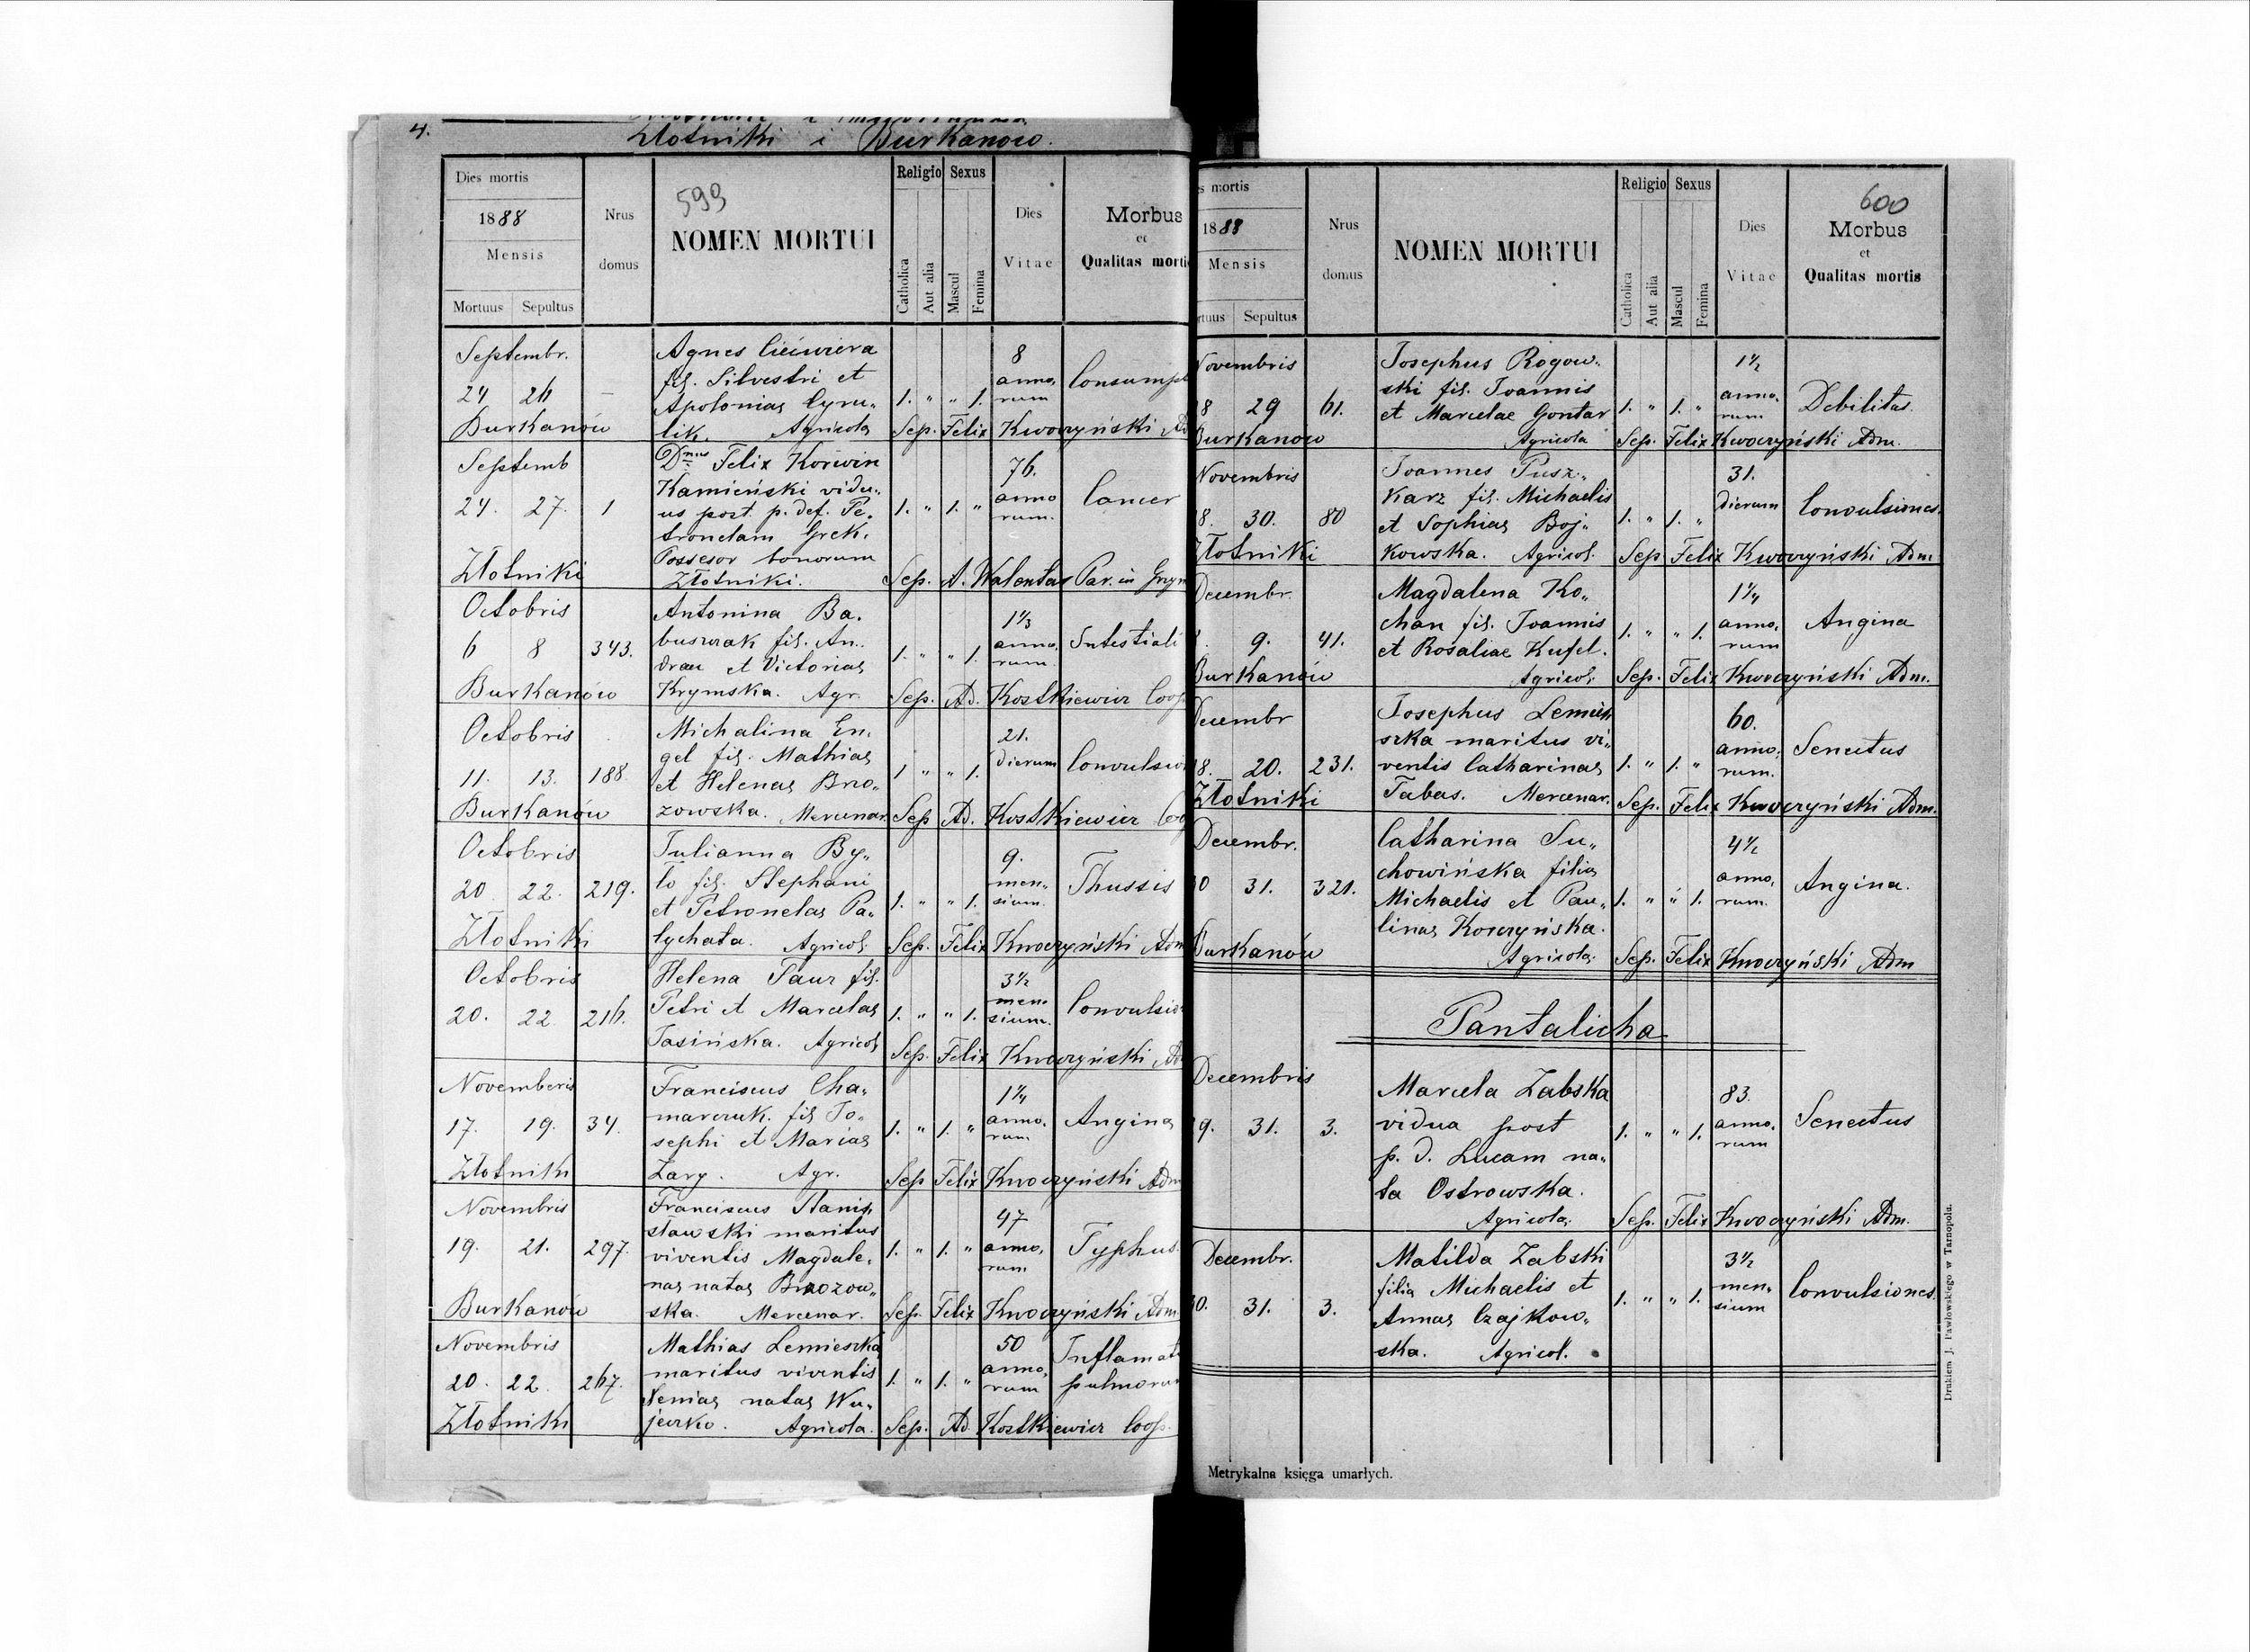 4.
Złotniki i Burkanow.
Dies mortis
1888
Mensis
Mortuus Sepultus
Nrus
domus
593
NOMEN MORTUI
Religio Sexus
Catholica
Aut alia
Mascul
Femina
Dies
Vitae
Morbus
et
Qualitas morti
Septembr.
24 26 —
Burkanów
Agnes
fil. Silvestri et
Apolonias Cyru„
lik. Agricola
1. „ „ 1.
8
anno,
rum
Consumpt
Sep. Felix Kwoczyński Ad
Septemb
24. 27. 1
Złotniki
Dnus Felix Korwin
Kamieński vidu„
us post. p. def. Pe„
tronelam Grek.
Possesor bonorum
Złotniki.
1. „ 1. „
76.
anno
rum.
Cancer
Sep. A. Walentas Par. in Grzym
Octobris
6 8 343.
Burkanów
Antonina Ba.
buszrak fil. An„
dreae et Victorias
Krymska. Agr.
1. „ „ 1.
1 1/3
anno,
rum.
Sep. Ad. Kostkiewicz Coop
Octobris
11. 13. 188.
Burkanów
Michalina En.
gel fil. Mathias
et Helenas Brzo„
zowska. Mercenar.
1 „ „ 1.
21.
dierum
Convulsion
Sep Ad. Kostkiewicz Coo
Octobris
20 22. 219.
Złotniki
Julianna By„
lo fil. Stephani
et Petronelas Pa„
lychata. Agricol.
1. „ „ 1.
9.
men„
sium.
Thussis
Sep. Felix Kwoczyński Adm
Octobris
20. 22 216.
Helena Taur fil.
Petri et Marcelas
Jasińska. Agricol
1. „ „ 1.
3 1/2
men„
sium.
Convulsio
Sep. Felix Kwoczyński Ad
Novemberis
17. 19. 34.
Złotniki
Franciscus Cha„
marczuk. fil Jo„
sephi et Marias
Zary. Agr.
1. „ 1. „
1 1/4
anno.
rum
Angina
Sep Felix Kwoczyński Adm
Novembris
19. 21. 297.
Burkanów
Franciscus Stanis
sławski maritus
viventis Magdale„
nas natas Brzozow„
ska. Mercenar.
1. „ 1. „
47
anno,
rum
Typhus.
Sep. Felix Kwoczyński Adm
Novembris
20. 22. 267.
Złotniki
Mathias Lemieszka
maritus viventis
Xenias natas Wu„
jeurko. Agricola.
1. „ 1. „
50
anno,
rum
Inflamat
pulmorum
Sep. Ad Kostkiewicz Coop.
s mortis
1888
Mensis
rtuus Sepultus
Nrus
domus
NOMEN MORTUI
Religio Sexus
Catholica
Aut alia
Mascul
Femina
Dies
Vitae
600
Morbus
et
Qualitas mortis
Novembris
8 29 61.
Burkanow
Josephus Rogow„
ski fil. Joannis
et Marcelae Gontar
Agricola
1. „ 1. „
1 1/2
anno,
rum
Debilitas.
Sep. Felix Kwoczyński Adm.
Novembris
8. 30. 80
Złotniki
Joannes Pusz„
karz fil. Michaelis
et Sophias Boj„
kowska. Agricol.
1. „ 1. „
31.
dierum
Convulsiones.
Sep Felix Kwoczyński Adm.
Decembr.
9. 41.
Burkanów
Magdalena Ko„
chan fil. Joannis
et Rosaliae Kufel.
Agricol.
1. „ „ 1.
1 1/4
anno,
rum
Angina
Sep. Felix Kwoczyński Adm.
Decembr
8. 20. 231.
Złotniki
Josephus Lemie
szka maritus vi„
ventis Catharinas
Tabas. Mercenar.
1. „ 1. „
60.
anno,
rum.
Senectus
Sep. Felix Kwoczyński Adm.
Decembr.
30 31. 321.
Burkanów
Catharina Su„
chowińska filia
Michaelis et Pau„
linas Korczyńska.
Agricola.
1. „ „ 1.
4 1/2
anno,
rum.
Angina.
Sep. Felix Kwoczyński Adm
Pantalicha
Decembris
9. 31. 3.
Marcela Zabska
vidua post
p. d. Lucam na„
ta Ostrowska.
Agricola.
1. „ „ 1.
83.
anno,
rum
Senectus
Sep. Felix Kwoczyński Adm.
Decembr.
30. 31. 3.
Matilda Zabski
filia Michaelis et
Annas Czajkow„
ska. Agricol.
1. „ „ 1.
3 1/2
men„
sium
Convulsiones.
Metrykalna księga umarłych.
Drukiem J. Pawłowskiego w Tarnopolu.